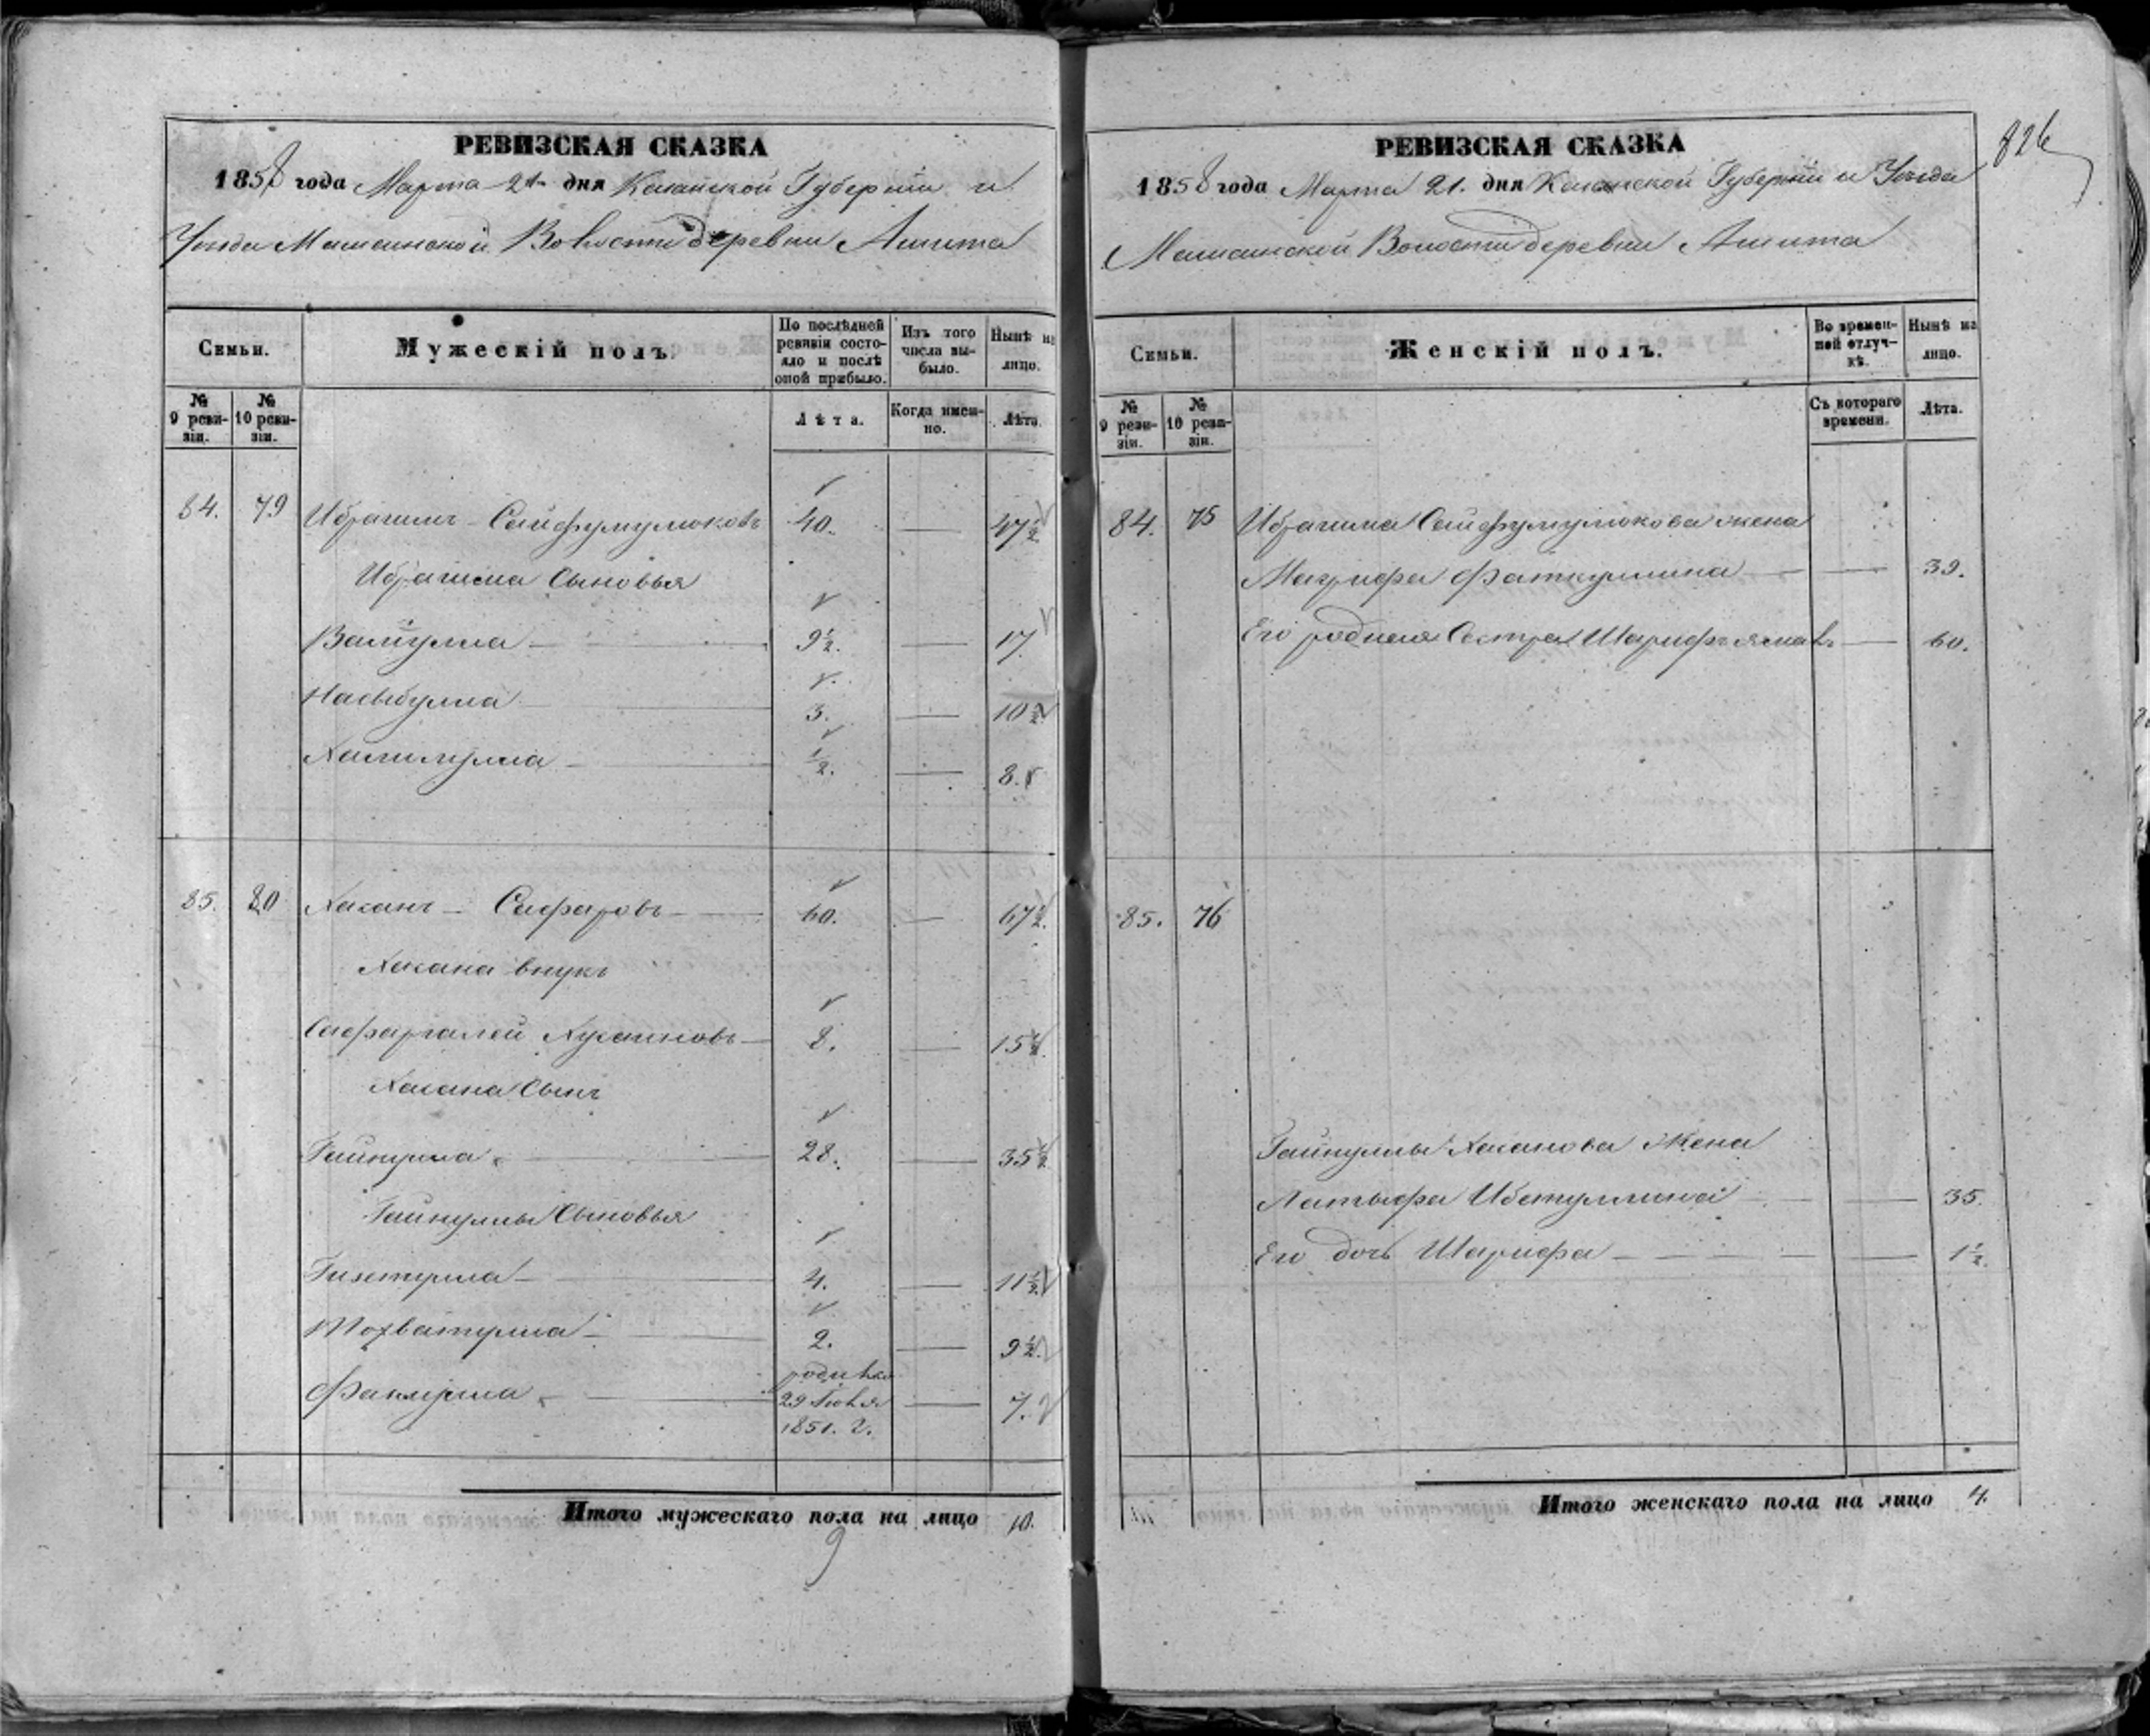 826
РЕВИЗСКАЯ СКАЗКА
1858 года Марта 21 дня Казанской Губернии и
Уезда Мамсинской Волости деревни Ашита
Семьи.
Мужескій полъ.
По послѣдней ревизіи состояло и послѣ оной прибыло.
Изъ того числа выбыло.
Нынѣ на лицо.
№ 9 ревизіи.
№ 10 ревизіи.
Лѣта.
Когда именно.
Лѣта.
84. 79 Ибрагимъ Сейфулмулюковъ 40. — 47½
Ибрагима Сыновья
Валиулла — 9½. — 17.
Насыбулла — 3. — 10½
Халимулла — ½. — 8.
85. 80 Хасанъ — Сафаровъ — 60. — 67½.
Хасана внукъ
Сафаргалей Хусаиновъ — 8. — 15½.
Хасана Сынъ
Гайнулла — 28. — 35½
Гайнуллы Сыновья
Гизетулла — 4. — 11½.
Мохватулла — 2. — 9½.
родился
Факлулла — 29 Іюля — 7.
1851. г.
Итого мужескаго пола на лицо 10.
9
РЕВИЗСКАЯ СКАЗКА
1858 года Марта 21. дня Казанской Губернии и Уезда
Мамсинской Волости деревни Ашита
Семьи.
Женскій полъ.
Во временной отлучкѣ.
Нынѣ на лицо.
№ 9 ревизіи.
№ 10 ревизіи.
Съ котораго времени.
Лѣта.
84. 75 Ибрагима Сейфулмулюкова жена
Магрифа Фаткуллина — — 39.
Его родная Сестра Шарифъямалъ — 60.
85. 76
Гайнуллы Хасанова Жена
Латыфа Ибетуллина — — 35.
Его дочь Шарифа — — 1½.
Итого женскаго пола на лицо 4.